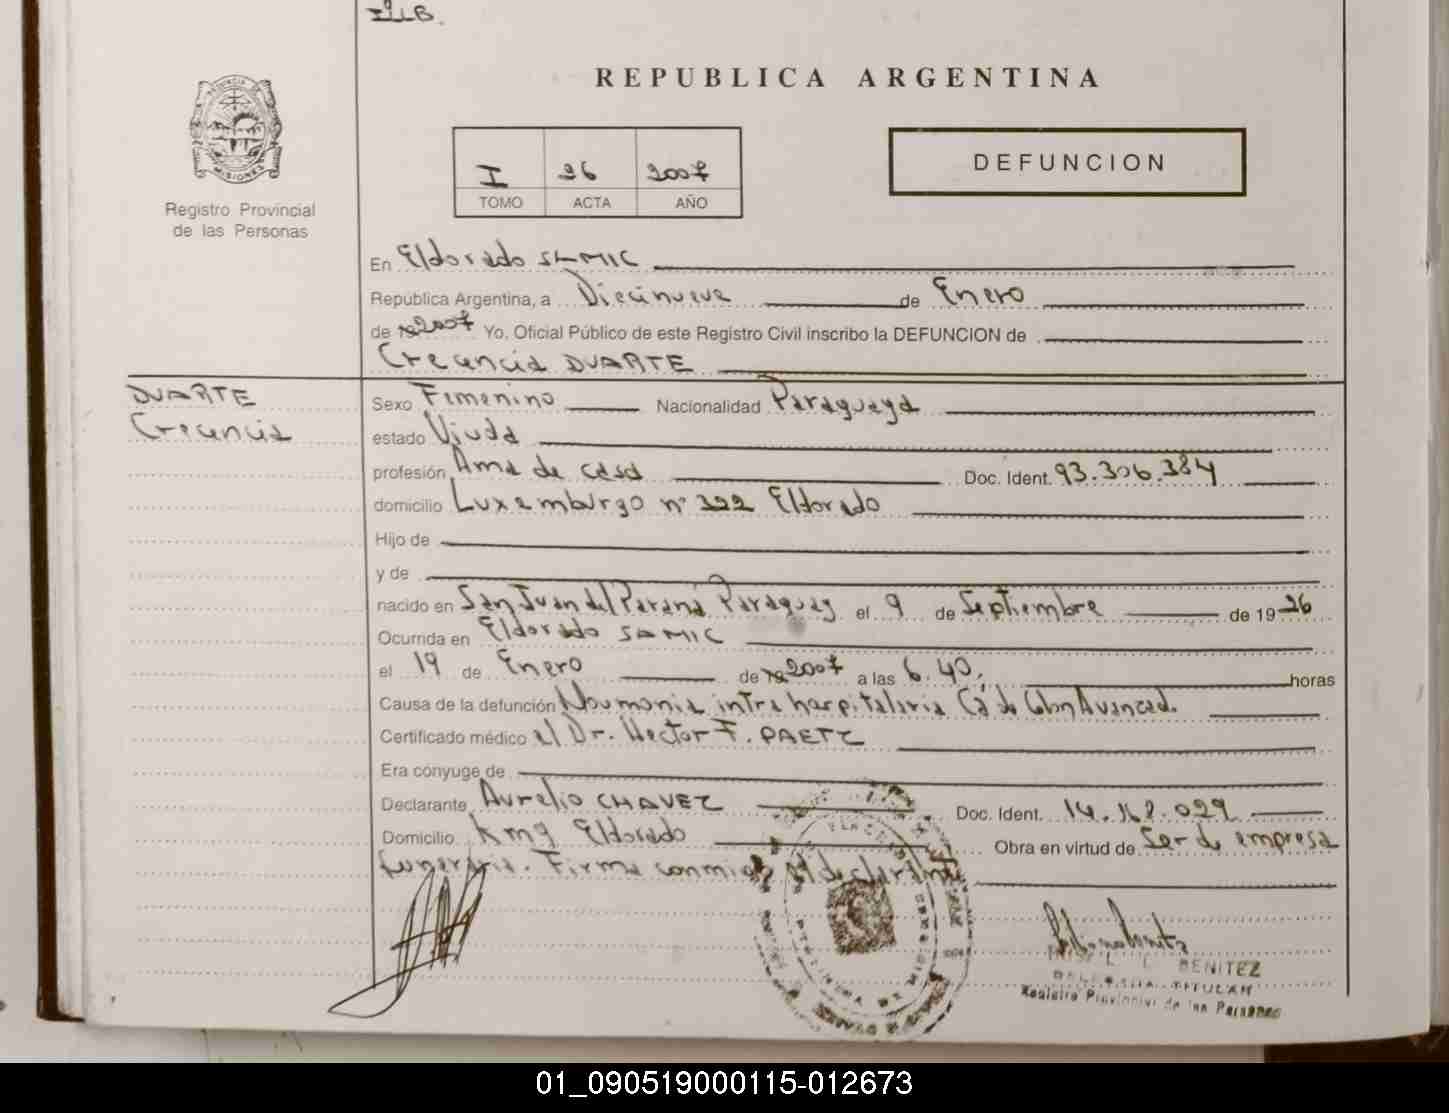 REPUBLICA ARGENTINA
PROVINCIA DE
MISIONES
Registro Provincial
de las Personas
I 26 2007
TOMO ACTA AÑO
DEFUNCION
En Eldorado SAMIC
República Argentina, a Diecinueve de Enero
de 2007 Yo, Oficial Público de este Registro Civil inscribo la DEFUNCION de
Creancia DUARTE
DUARTE
Creancia
Sexo Femenino Nacionalidad Paraguaya
estado Viuda
profesión Ama de casa Doc. Ident. 93.306.384
domicilio Luxemburgo nº 322 Eldorado
Hijo de
y de
nacido en San Juan del Paraná Paraguay el 9 de Septiembre de 1926
Ocurrida en Eldorado SAMIC
el 19 de Enero de 2007 a las 6.40, horas
Causa de la defunción Neumonia intrahospitalaria Ca de Colon Avanzad.
Certificado médico el Dr. Hector F. PAETZ
Era cónyuge de
Declarante Aurelio CHAVEZ Doc. Ident. 14.168.029
Domicilio Km 9 Eldorado Obra en virtud de Ser de empresa
funeraria. Firma conmigo el declarante
BENITEZ
DELEGADA TITULAR
Registro Provincial de las Personas
01_090519000115-012673